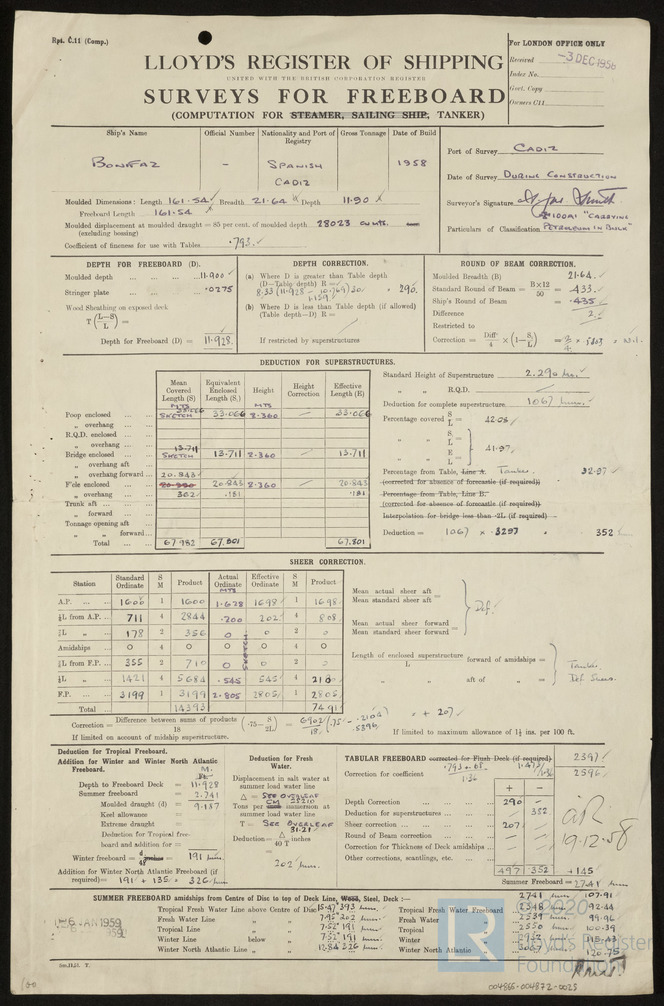 Rpt. C.11 (Comp.)
For LONDON OFFICE ONLY
Received -3 DEC 1958
Index No.
Govt. Copy
Owners C11
LLOYD'S REGISTER OF SHIPPING
UNITED WITH THE BRITISH CORPORATION REGISTER
SURVEYS FOR FREEBOARD
(COMPUTATION FOR STEAMER, SAILING SHIP, TANKER)
Ship's Name Official Number Nationality and Port of Registry Gross Tonnage Date of Build
BONIFAZ - SPANISH CADIZ 1958
Port of Survey CADIZ
Date of Survey DURING CONSTRUCTION
Surveyor's Signature
Particulars of Classification 100A1 "CARRYING PETROLEUM IN BULK"
Moulded Dimensions: Length 161.54 Breadth 21.64 Depth 11.90
Freeboard Length 161.54
Moulded displacement at moulded draught = 85 per cent. of moulded depth 28023
(excluding bossing)
Coefficient of fineness for use with Tables .793
DEPTH FOR FREEBOARD (D).
Moulded depth 11.900
Stringer plate .0275
Wood Sheathing on exposed deck
T (L-S / L) =
Depth for Freeboard (D) = 11.928
DEPTH CORRECTION.
(a) Where D is greater than Table depth
(D-Table depth) R =
8.33 (11.928 - 10.769) 30 = 290
1.159
(b) Where D is less than Table depth (if allowed)
(Table depth-D) R =
If restricted by superstructures
ROUND OF BEAM CORRECTION.
Moulded Breadth (B) 21.64
Standard Round of Beam = B×12 / 50 = .433
Ship's Round of Beam = .435
Difference 2
Restricted to
Correction = Diff. / 4 × (1 - S / L) =
DEDUCTION FOR SUPERSTRUCTURES.
Mean Covered Length (S) Equivalent Enclosed Length (S₁) Height Height Correction Effective Length (E)
Poop enclosed SKETCH 33.066 2.360 33.066
„ overhang
R.Q.D. enclosed
„ overhang
Bridge enclosed 13.711 SKETCH 13.711 2.360 13.711
„ overhang aft
„ overhang forward
F'cle enclosed 20.843 20.843 2.360 20.843
„ overhang 362 .181 .181
Trunk aft
„ forward
Tonnage opening aft
„ „ forward
Total 67.982 67.801 67.801
Standard Height of Superstructure 2.290
„ „ R.Q.D.
Deduction for complete superstructure 1067
Percentage covered S / L = 42.08
„ „ S₁ / L =
„ „ E / L = 41.97
Percentage from Table, Line A. Tanker 32.97
(corrected for absence of forecastle (if required))
Percentage from Table, Line B.
(corrected for absence of forecastle (if required))
Interpolation for bridge less than .2L (if required)
Deduction = 1067 × .3297 = 352
SHEER CORRECTION.
Station Standard Ordinate S M Product Actual Ordinate Effective Ordinate S M Product
A.P. 1600 1 1600 1.628 1698 1 1698
⅙L from A.P. 711 4 2844 .200 202 4 808
⅓L „ 178 2 356 0 0 2 0
Amidships 0 4 0 0 0 4 0
⅓L from F.P. 355 2 710 0 0 2 0
⅙L „ 1421 4 5684 .545 545 4 2180
F.P. 3199 1 3199 2.805 2805 1 2805
Total 14393 7491
Mean actual sheer aft
Mean standard sheer aft =
Mean actual sheer forward
Mean standard sheer forward =
Def.
Length of enclosed superstructure / L forward of amidships =
„ „ aft of „ =
Correction = Difference between sums of products / 18 (.75 - S / 2L) = 6902 / 18 (.75 - .2104) = + 207
.5396
If limited on account of midship superstructure.
If limited to maximum allowance of 1½ ins. per 100 ft.
Deduction for Tropical Freeboard.
Addition for Winter and Winter North Atlantic Freeboard.
Depth to Freeboard Deck = 11.928
Summer freeboard = 2.741
Moulded draught (d) = 9.187
Keel allowance =
Extreme draught =
Deduction for Tropical freeboard and addition for
Winter freeboard = 191 mm.
Addition for Winter North Atlantic Freeboard (if required) = 191 + 135 = 326 mm
Deduction for Fresh Water.
Displacement in salt water at summer load water line
Δ = SEE OVERLEAF
28210
Tons per CM immersion at summer load water line
T = SEE OVERLEAF
31.21
Deduction = Δ / 40 T inches
= 202 mm.
TABULAR FREEBOARD corrected for Flush Deck (if required) 2397
Correction for coefficient .793 + .68 / 1.36 1.473 / 1.36 2596
+ -
Depth Correction 290 -
Deduction for superstructures - 352
Sheer correction 207 -
Round of Beam correction - -
Correction for Thickness of Deck amidships - -
Other corrections, scantlings, etc. - -
497 352 +145
19.12.58
Summer Freeboard = 2741
SUMMER FREEBOARD amidships from Centre of Disc to top of Deck Line, Wood, Steel, Deck:- 2741 107.91
Tropical Fresh Water Line above Centre of Disc 15.47 393 mm Tropical Fresh Water Freeboard 2348 92.44
Fresh Water Line „ „ 7.95 202 mm Fresh Water „ 2539 99.96
Tropical Line „ „ 7.52 191 mm Tropical „ 2550 100.39
Winter Line below „ 7.52 191 mm Winter „ 2932 115.43
Winter North Atlantic Line „ „ 12.84 326 mm Winter North Atlantic „ 3067 120.75
6 JAN 1959
© 2020
Lloyd's Register
Foundation
004866-004872-0025